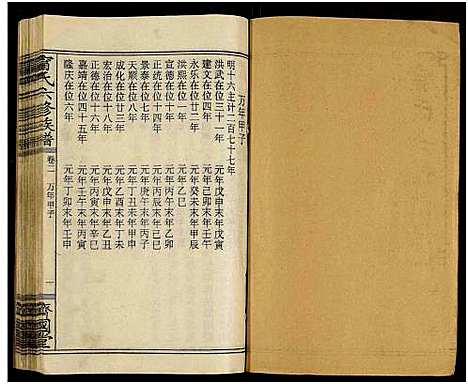 万年甲子
明十六主计二百七十七年
洪武在位三十一年 元年戊申末年戊寅
建文在位四年 元年己卯末年壬午
永乐在位廿二年 元年癸未末年甲辰
洪熙在位一年 元年乙巳
宣德在位十年 元年丙午末年乙卯
正统在位十四年 元年丙辰末年己巳
景泰在位七年 元年庚午末年丙子
天顺在位八年 元年丁丑末年甲申
成化在位廿三年 元年乙酉末年丁未
宏治在位十八年 元年戊申末年乙丑
正德在位十六年 元年丙寅末年辛巳
嘉靖在位四十五年 元年壬午末年丙寅
隆庆在位六年 元年丁卯末年壬申
氏六修族谱
卷一 万年甲子
一
齊國堂